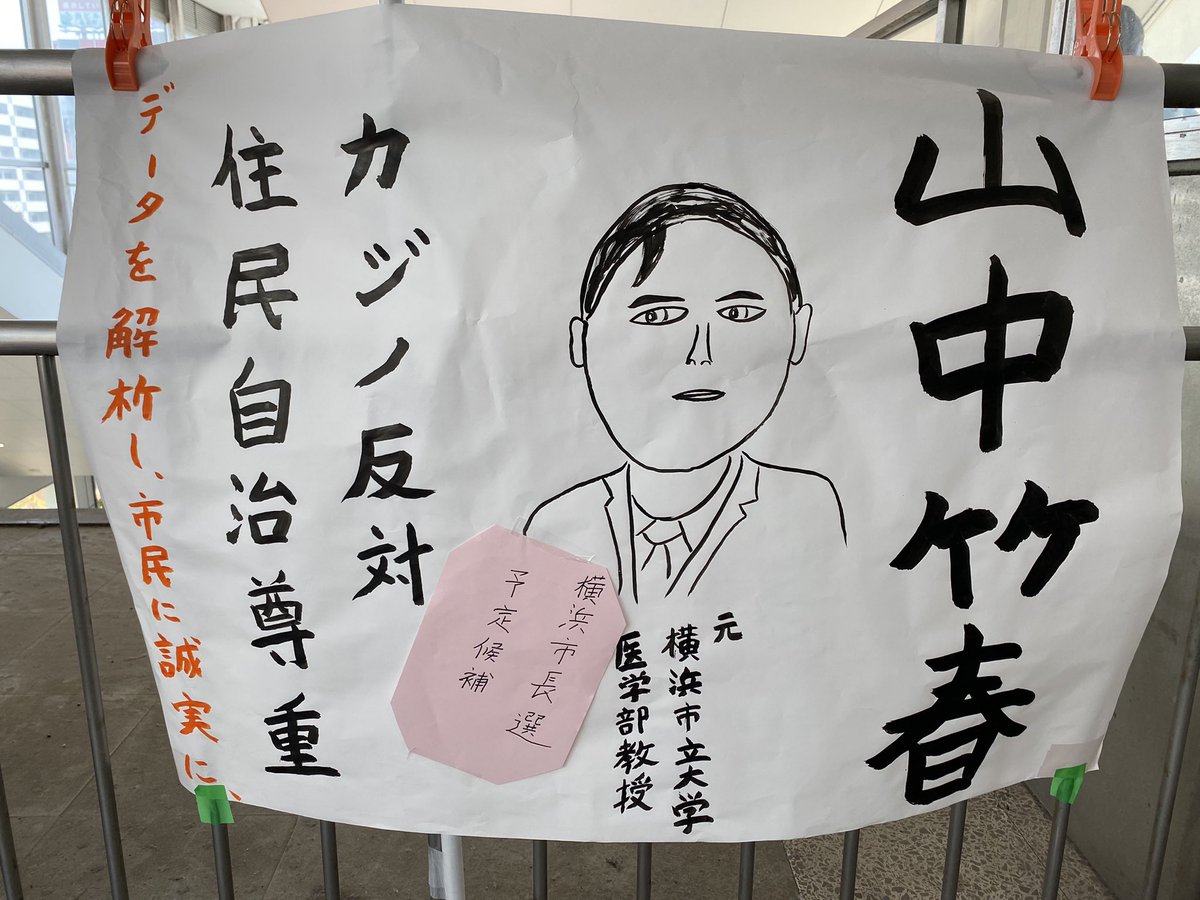 山中竹春
元
横浜市立大学
医学部教授
横浜市長選
予定候補
カジノ反対
住民自治尊重
データを解析し、市民に誠実に、